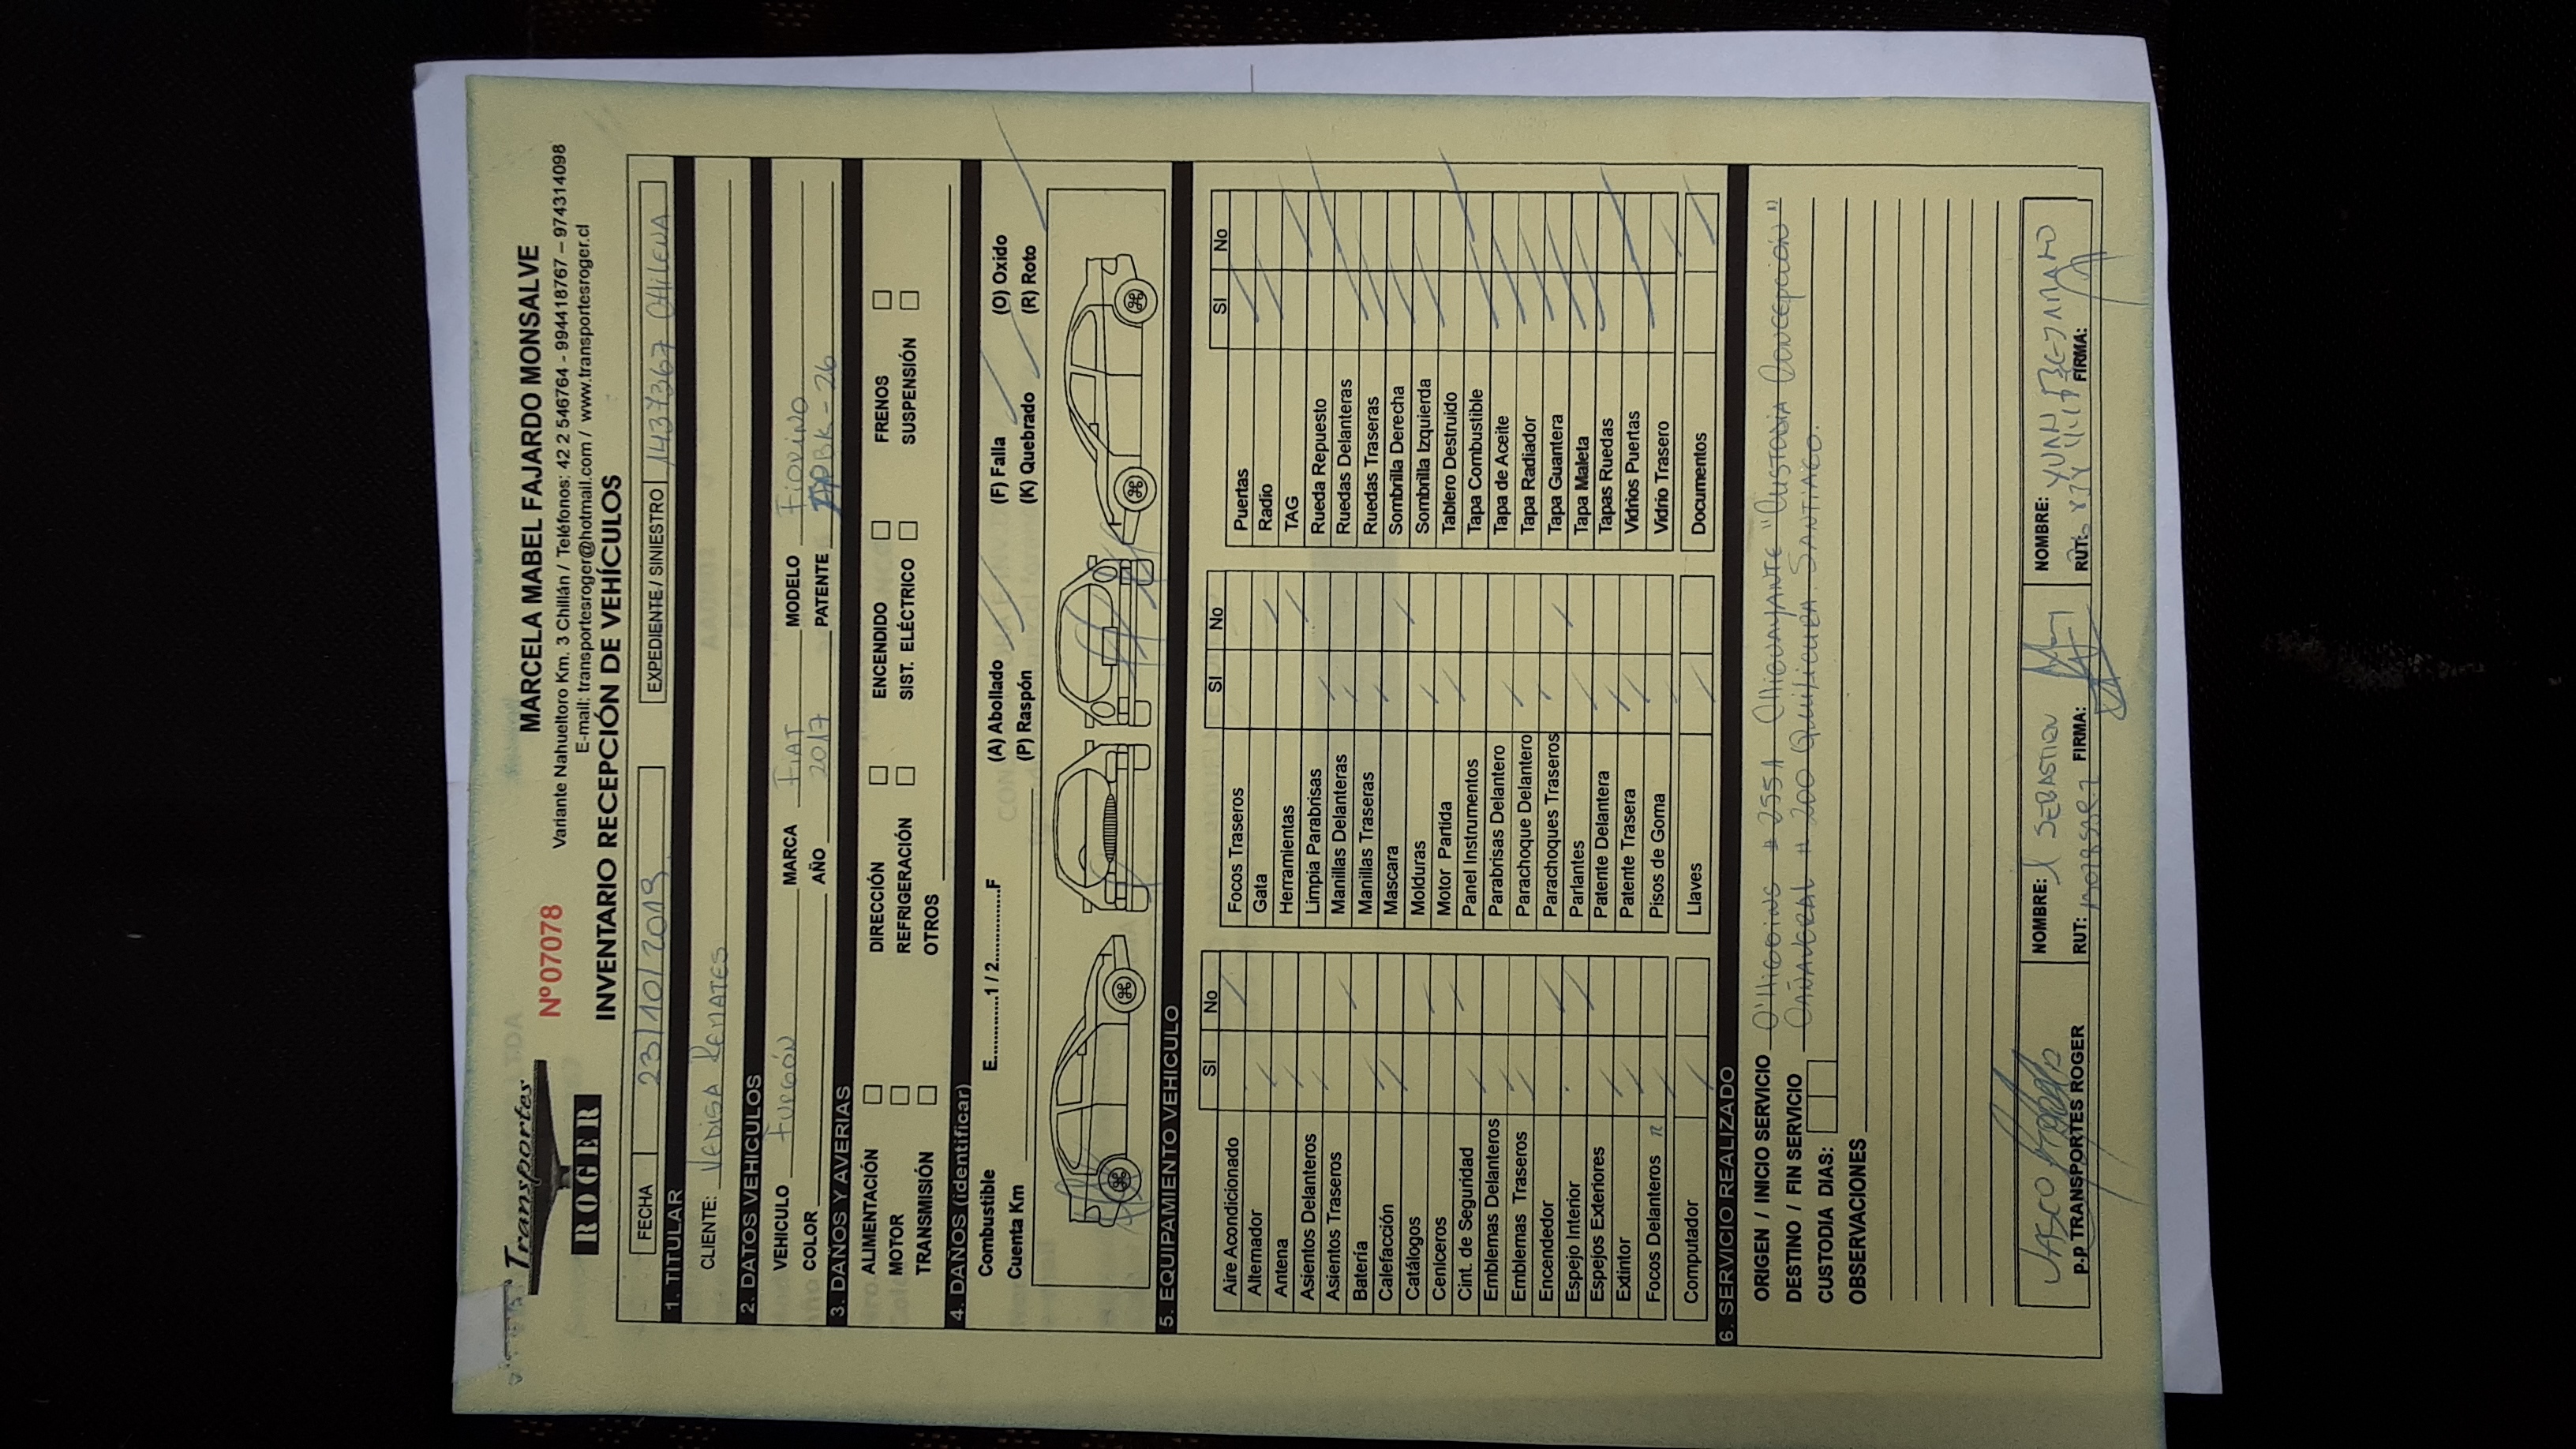 Transportes
ROGER
Nº 07078
MARCELA MABEL FAJARDO MONSALVE
Variante Nahueltoro Km. 3 Chillán / Teléfonos: 42 2 546764 - 994418767 – 974314098
E-mail: transportesroger@hotmail.com / www.transportesroger.cl
INVENTARIO RECEPCIÓN DE VEHÍCULOS
FECHA 23/10/2019 EXPEDIENTE / SINIESTRO 1437367 CHILENA
1. TITULAR
CLIENTE: VEDISA REMATES
2. DATOS VEHICULOS
VEHICULO FURGÓN MARCA FIAT MODELO FIORINO
COLOR AÑO 2017 PATENTE BK-26
3. DAÑOS Y AVERIAS
ALIMENTACIÓN DIRECCIÓN ENCENDIDO FRENOS
MOTOR REFRIGERACIÓN SIST. ELÉCTRICO SUSPENSIÓN
TRANSMISIÓN OTROS
4. DAÑOS (identificar)
Combustible E............1 / 2............F (A) Abollado (F) Falla (O) Oxido
Cuenta Km (P) Raspón (K) Quebrado (R) Roto
5. EQUIPAMIENTO VEHICULO
SI No SI No SI No
Aire Acondicionado Focos Traseros Puertas
Alternador Gata Radio
Antena Herramientas TAG
Asientos Delanteros Limpia Parabrisas Rueda Repuesto
Asientos Traseros Manillas Delanteras Ruedas Delanteras
Batería Manillas Traseras Ruedas Traseras
Calefacción Mascara Sombrilla Derecha
Catálogos Molduras Sombrilla Izquierda
Ceniceros Motor Partida Tablero Destruido
Cint. de Seguridad Panel Instrumentos Tapa Combustible
Emblemas Delanteros Parabrisas Delantero Tapa de Aceite
Emblemas Traseros Parachoque Delantero Tapa Radiador
Encendedor Parachoques Traseros Tapa Guantera
Espejo Interior Parlantes Tapa Maleta
Espejos Exteriores Patente Delantera Tapas Ruedas
Extintor Patente Trasera Vidrios Puertas
Focos Delanteros Pisos de Goma Vidrio Trasero
Computador Llaves Documentos
6. SERVICIO REALIZADO
ORIGEN / INICIO SERVICIO O'HIGGINS # 255A CHIGUAYANTE "CUSTODIA CONCEPCION"
DESTINO / FIN SERVICIO CAÑAVERAL # 200 QUILICURA. SANTIAGO.
CUSTODIA DIAS:
OBSERVACIONES
NOMBRE: SEBASTIAN NOMBRE:
p.p TRANSPORTES ROGER RUT: FIRMA: RUT: FIRMA: